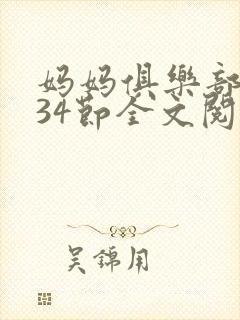 妈妈俱樂部
34節全文閱
吴錦用